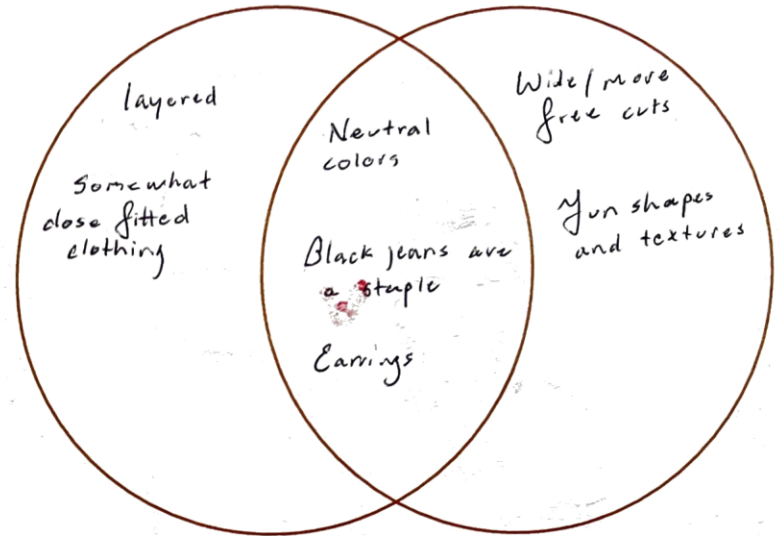 layered
Somewhat
close fitted
clothing
Neutral
colors
Black jeans are
a staple
Earrings
Wide/more
free cuts
Fun shapes
and textures